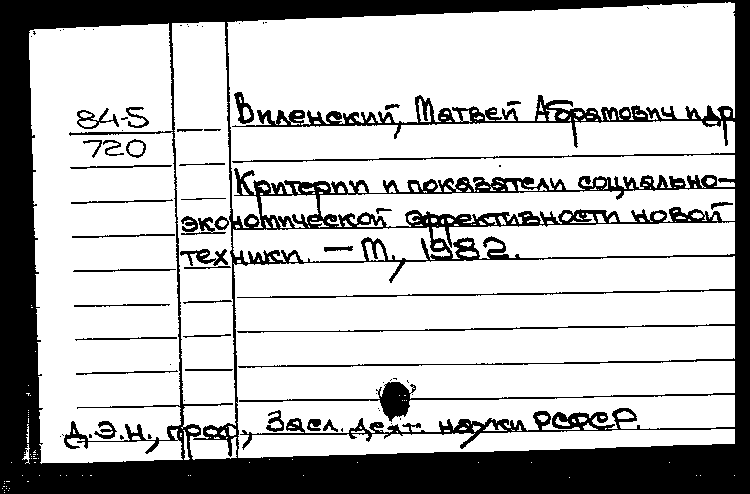 84-5
720
Виленский, Матвей Абрамович и др
Критерии и показатели социально-
экономической эффективности новой
техники. — М., 1982.
Д.Э.Н., проф., Засл. деят. науки РСФСР.